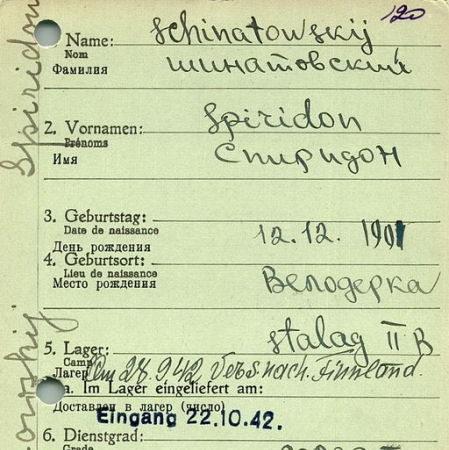 120
Name: Schinatowskij
Nom
Фамилия Шинатовский
2. Vornamen: Spiridon
Prénoms
Имя Спиридон
3. Geburtstag:
Date de naissance 12.12. 1901
День рождения
4. Geburtsort:
Lieu de naissance Велодерка
Место рождения
5. Lager: Stalag II B
Camp
Лагерь Am 28.9.42 Vers. nach Finnland.
a. Im Lager eingeliefert am:
Доставлен в лагерь (число)
Eingang 22.10.42.
6. Dienstgrad:
Grade
Spiridon